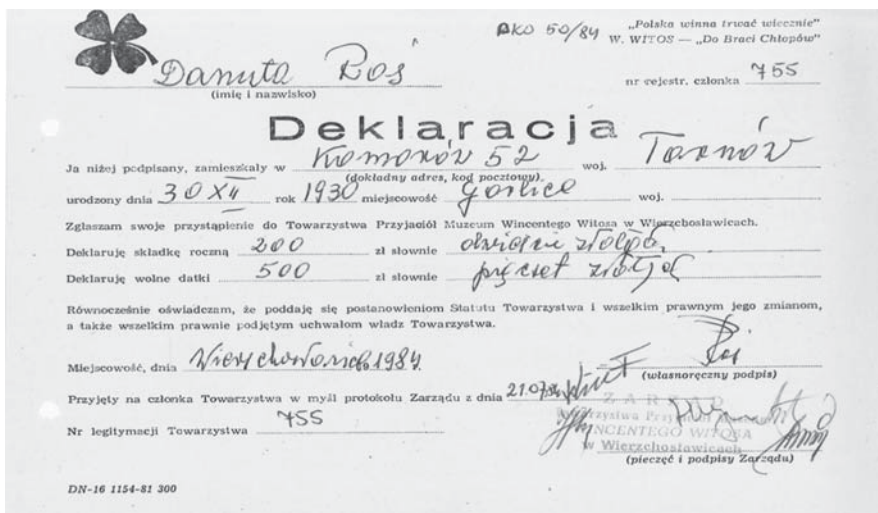 PKO 50/84 „Polska winna trwać wiecznie”
W. WITOS — „Do Braci Chłopów”
Danuta Roś
(imię i nazwisko)
nr rejestr. członka 755
Deklaracja
Ja niżej podpisany, zamieszkały w Komorów 52 woj. Tarnów
(dokładny adres, kod pocztowy)
urodzony dnia 30 XII rok 1930 miejscowość Gorlice woj.
Zgłaszam swoje przystąpienie do Towarzystwa Przyjaciół Muzeum Wincentego Witosa w Wierzchosławicach.
Deklaruję składkę roczną 200 zł słownie dwieście złotych
Deklaruję wolne datki 500 zł słownie pięćset złotych
Równocześnie oświadczam, że poddaję się postanowieniom Statutu Towarzystwa i wszelkim prawnym jego zmianom,
a także wszelkim prawnie podjętym uchwałom władz Towarzystwa.
Miejscowość, dnia 1984.
(własnoręczny podpis)
Przyjęty na członka Towarzystwa w myśl protokołu Zarządu z dnia 21.07.84
ZARZĄD
Towarzystwa
WINCENTEGO WITOSA
w Wierzchosławicach
Nr legitymacji Towarzystwa 755
(pieczęć i podpisy Zarządu)
DN-16 1154-81 300